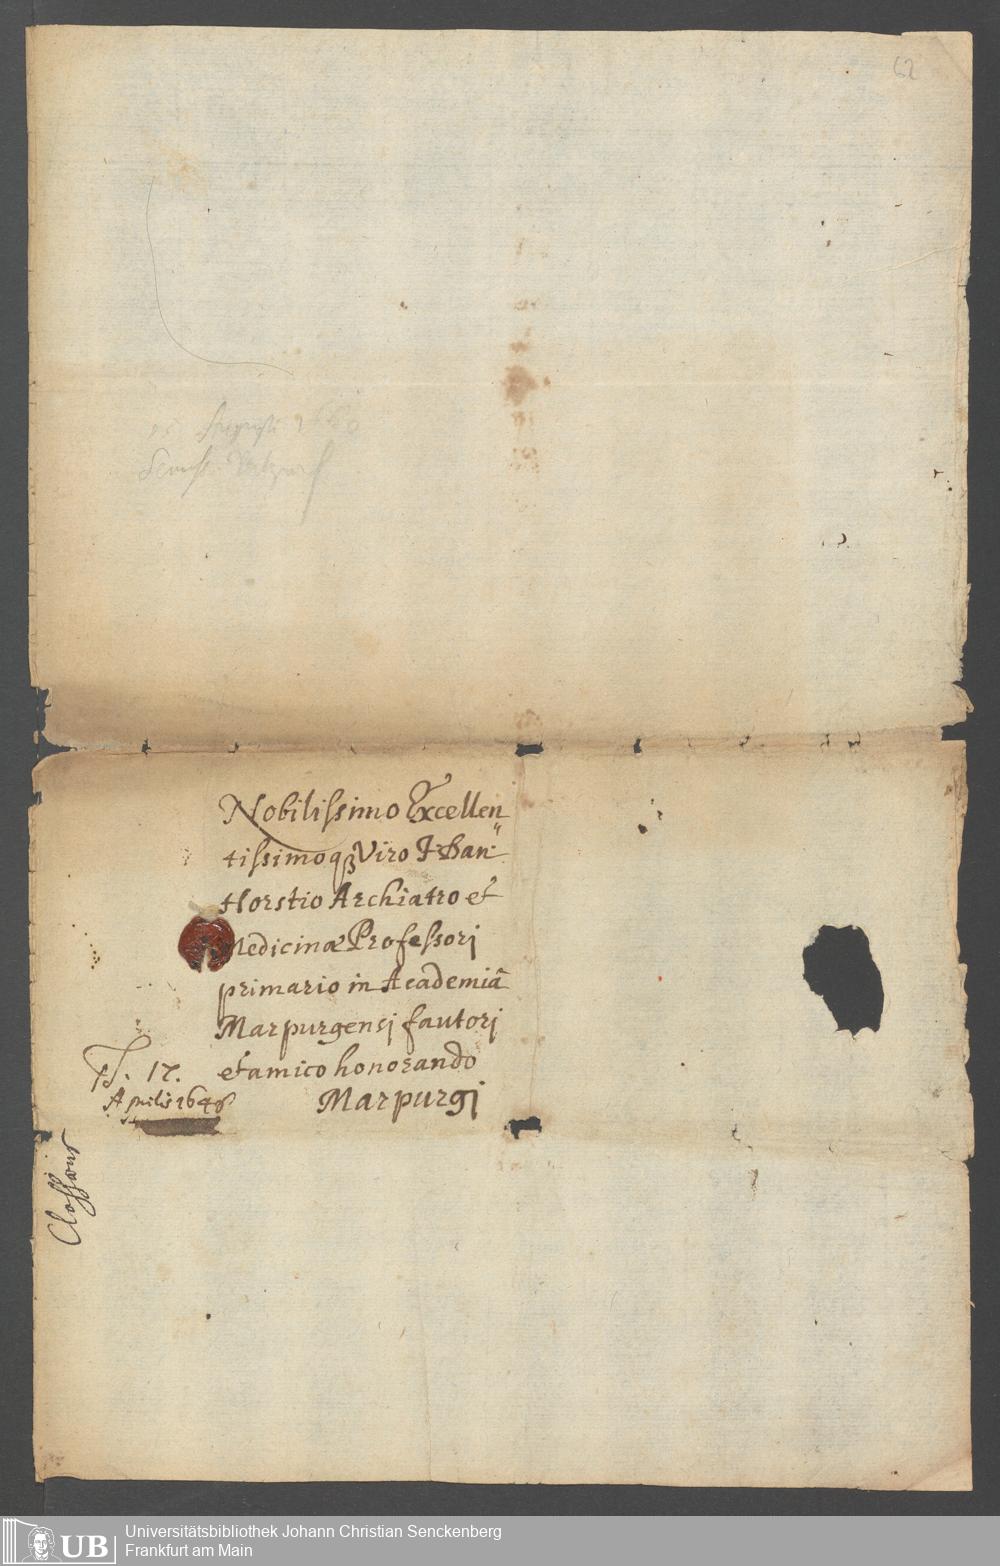 62
Nobilissimo Excellen
tissimoqꝫ Viro Johan:
Horstio Archiatro et
Medicinæ Professorj
primario in Academiâ
Marpurgensj fautorj
et amico honorando
Marpurgj
17.
Aprilis 1648
Clossæus
Universitätsbibliothek Johann Christian Senckenberg
Frankfurt am Main
UB